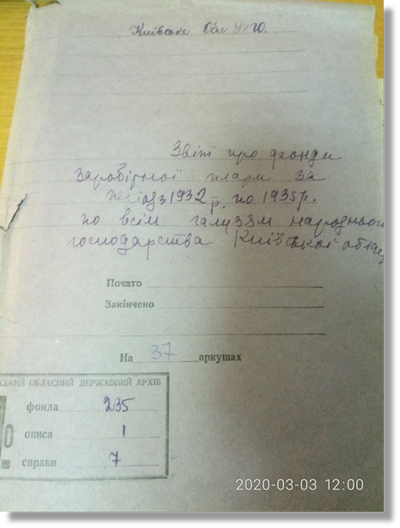 Київське Обл УНГО.
Звіт про фонди
заробітної плати за
період з 1932 р. по 1935 р.
по всім галузям народнього
господарства Київської облас
Почато
Закінчено
На 37 аркушах
СЬКИЙ ОБЛАСНИЙ ДЕРЖАВНИЙ АРХІВ
фонда 235
описа 1
справи 7
2020-03-03 12:00